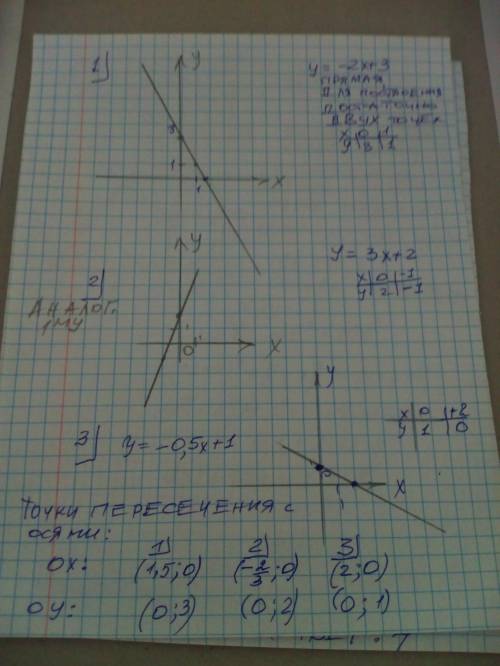 1)
y
3
1
1
x
y = -2x+3
ПРЯМАЯ
ДЛЯ ПОСТРОЕНИЯ
ДОСТАТОЧНО
ДВУХ ТОЧЕК
x 0 1
y 3 1
2)
АНАЛОГ.
1МУ
y
0
x
y = 3x+2
x 0 -1
y 2 -1
3) y = -0,5x+1
y
x
x 0 +2
y 1 0
ТОЧКИ ПЕРЕСЕЧЕНИЯ С
ОСЯМИ:
1) 2) 3)
OX: (1,5;0) (-2/3;0) (2;0)
OY: (0;3) (0;2) (0;1)